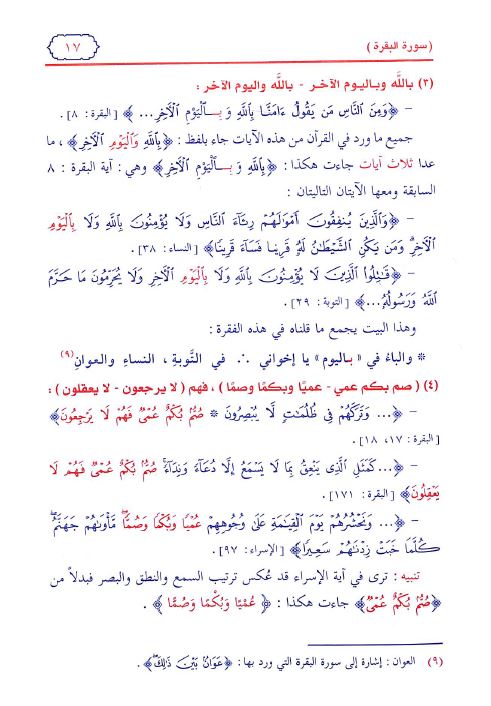 ( سورة البقرة )
١٧
(٣) بالله وباليوم الآخر - بالله واليوم الآخر :
– ﴿وَمِنَ ٱلنَّاسِ مَن يَقُولُ ءَامَنَّا بِٱللَّهِ وَبِـٱلْيَوْمِ ٱلْآخِرِ... ﴾ [البقرة : ٨].
جميع ما ورد في القرآن من هذه الآيات جاء بلفظ : ﴿بِٱللَّهِ وَٱلْيَوْمِ ٱلْآخِرِ﴾ ، ما
عدا ثلاث آيات جاءت هكذا : ﴿بِٱللَّهِ وَبِـٱلْيَوْمِ ٱلْآخِرِ﴾ وهي : آية البقرة : ٨
السابقة ومعها الآيتان التاليتان :
– ﴿وَٱلَّذِينَ يُنفِقُونَ أَمْوَٰلَهُمْ رِئَآءَ ٱلنَّاسِ وَلَا يُؤْمِنُونَ بِٱللَّهِ وَلَا بِٱلْيَوْمِ
ٱلْآخِرِ ۗ وَمَن يَكُنِ ٱلشَّيْطَٰنُ لَهُۥ قَرِينًا فَسَآءَ قَرِينًا﴾ [النساء : ٣٨].
– ﴿قَٰتِلُوا۟ ٱلَّذِينَ لَا يُؤْمِنُونَ بِٱللَّهِ وَلَا بِٱلْيَوْمِ ٱلْآخِرِ وَلَا يُحَرِّمُونَ مَا حَرَّمَ
ٱللَّهُ وَرَسُولُهُۥ...﴾ [التوبة : ٢٩].
وهذا البيت يجمع ما قلناه في هذه الفقرة :
* والباءُ في « باليوم » يا إخواني ∴ في التَّوبةِ ، النساءِ والعوانِ (٩)
(٤) ( صم بكم عمي - عميًا وبكمًا وصمًا ) ، فهم ( لا يرجعون - لا يعقلون ) :
– ﴿... وَتَرَكَهُمْ فِى ظُلُمَٰتٍ لَّا يُبْصِرُونَ * صُمٌّۢ بُكْمٌ عُمْىٌ فَهُمْ لَا يَرْجِعُونَ﴾
[البقرة : ١٧، ١٨].
– ﴿...كَمَثَلِ ٱلَّذِى يَنْعِقُ بِمَا لَا يَسْمَعُ إِلَّا دُعَآءً وَنِدَآءً ۚ صُمٌّۢ بُكْمٌ عُمْىٌ فَهُمْ لَا
يَعْقِلُونَ﴾ [البقرة : ١٧١].
– ﴿... وَنَحْشُرُهُمْ يَوْمَ ٱلْقِيَٰمَةِ عَلَىٰ وُجُوهِهِمْ عُمْيًا وَبُكْمًا وَصُمًّا ۖ مَّأْوَىٰهُمْ جَهَنَّمُ ۖ
كُلَّمَا خَبَتْ زِدْنَٰهُمْ سَعِيرًا﴾ [الإسراء : ٩٧].
تنبيه : ترى في آية الإسراء قد عُكس ترتيب السمع والنطق والبصر فبدلاً من
﴿صُمٌّۢ بُكْمٌ عُمْىٌ﴾ جاءت هكذا : ﴿ عُمْيًا وَبُكْمًا وَصُمًّا ﴾ .
(٩) العوان : إشارة إلى سورة البقرة التي ورد بها : ﴿عَوَانٌۢ بَيْنَ ذَٰلِكَ ۖ﴾ .